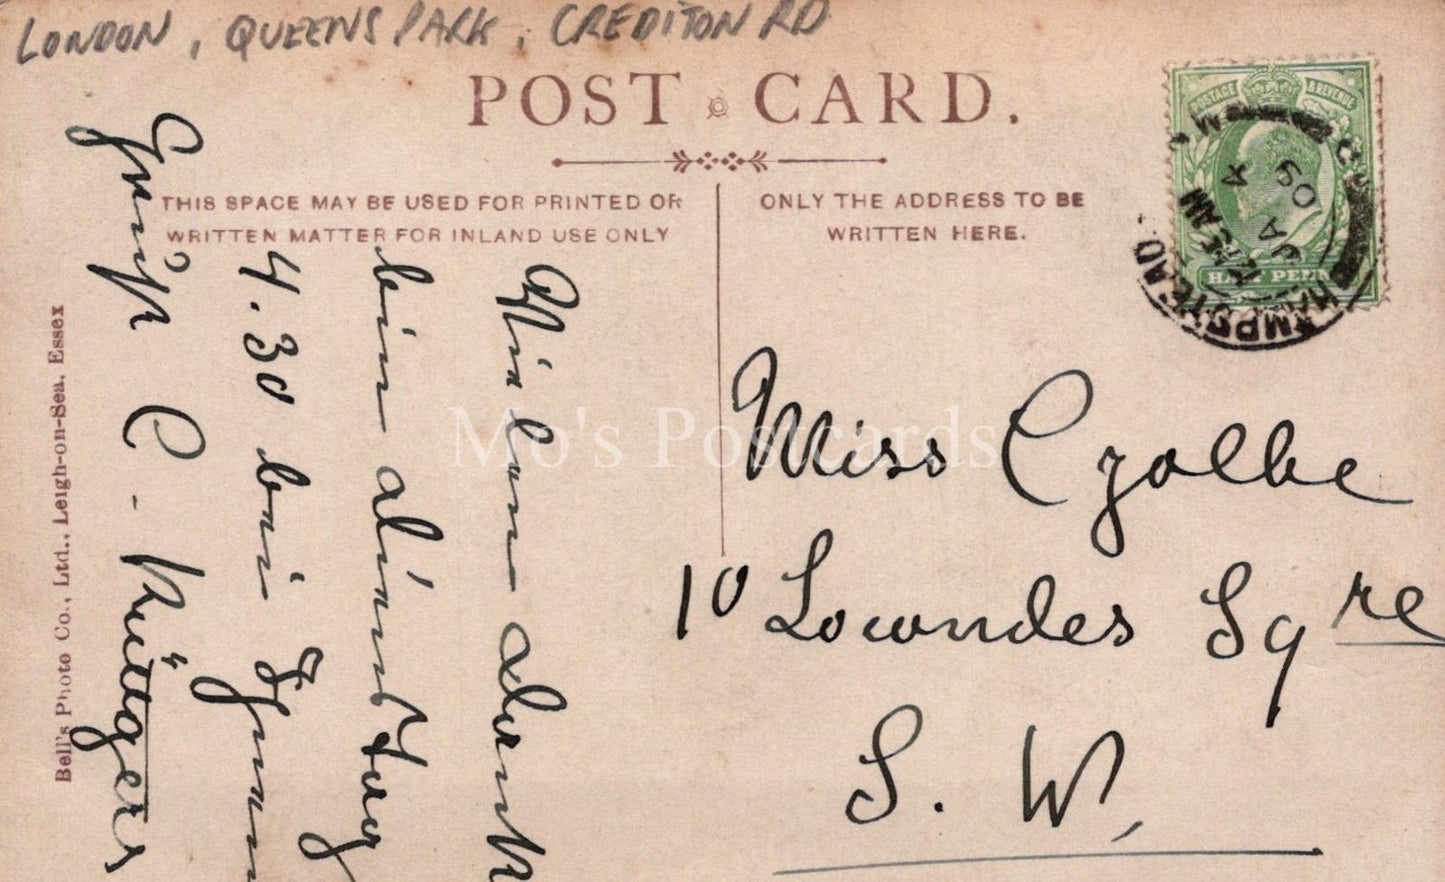 LONDON, QUEENS PARK, CREDITON RD
POST CARD.
THIS SPACE MAY BE USED FOR PRINTED OR
WRITTEN MATTER FOR INLAND USE ONLY
ONLY THE ADDRESS TO BE
WRITTEN HERE.
POSTAGE & REVENUE
HALF PENNY
HAMPSTEAD
4 AM
JA 4
09
Vielen Dank
bin Dienstag
4.30 bei Ihnen
Gruß C. Rüttgers
Miss Czolbe
10 Lowndes Sqre
S. W.
Bell's Photo Co., Ltd., Leigh-on-Sea, Essex
Mo's Postcards